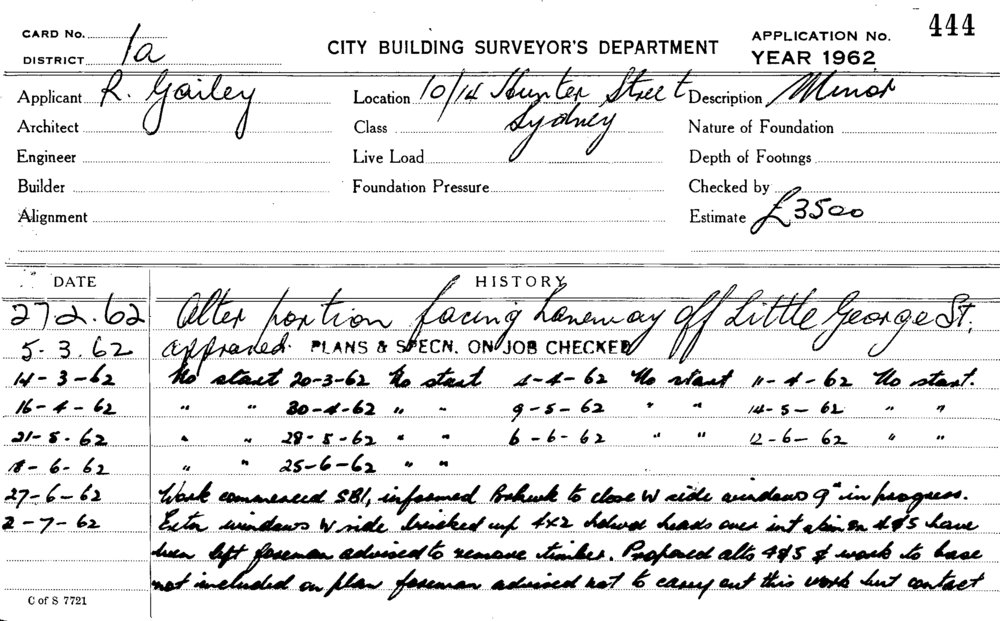 444
CARD No.
DISTRICT 1a
CITY BUILDING SURVEYOR'S DEPARTMENT
APPLICATION No.
YEAR 1962
Applicant R. Gailey
Location 10/14 Hunter Street
Sydney
Description Minor
Architect
Class
Nature of Foundation
Engineer
Live Load
Depth of Footings
Builder
Foundation Pressure
Checked by
Alignment
Estimate £3500
DATE HISTORY
27 2. 62 Alter portion facing Laneway off Little George St.
5. 3. 62 approved. PLANS & SPECN. ON JOB CHECKED
14-3-62 No start 20-3-62 No start 4-4-62 No start 11-4-62 No start.
16-4-62 " " 30-4-62 " " 9-5-62 " " 14-5-62 " "
21-5-62 " " 28-5-62 " " 6-6-62 " " 12-6-62 " "
18-6-62 " " 25-6-62 " "
27-6-62 Work commenced SBI, informed to close W side windows 9" in progress.
2-7-62 windows W side bricked up 4x2 heads over int 4 & 5 have
been left foreman advised to remove timber. Proposed alts 4 & 5 & work to base
not included on plan foreman advised not to carry out this work but contact
C of S 7721